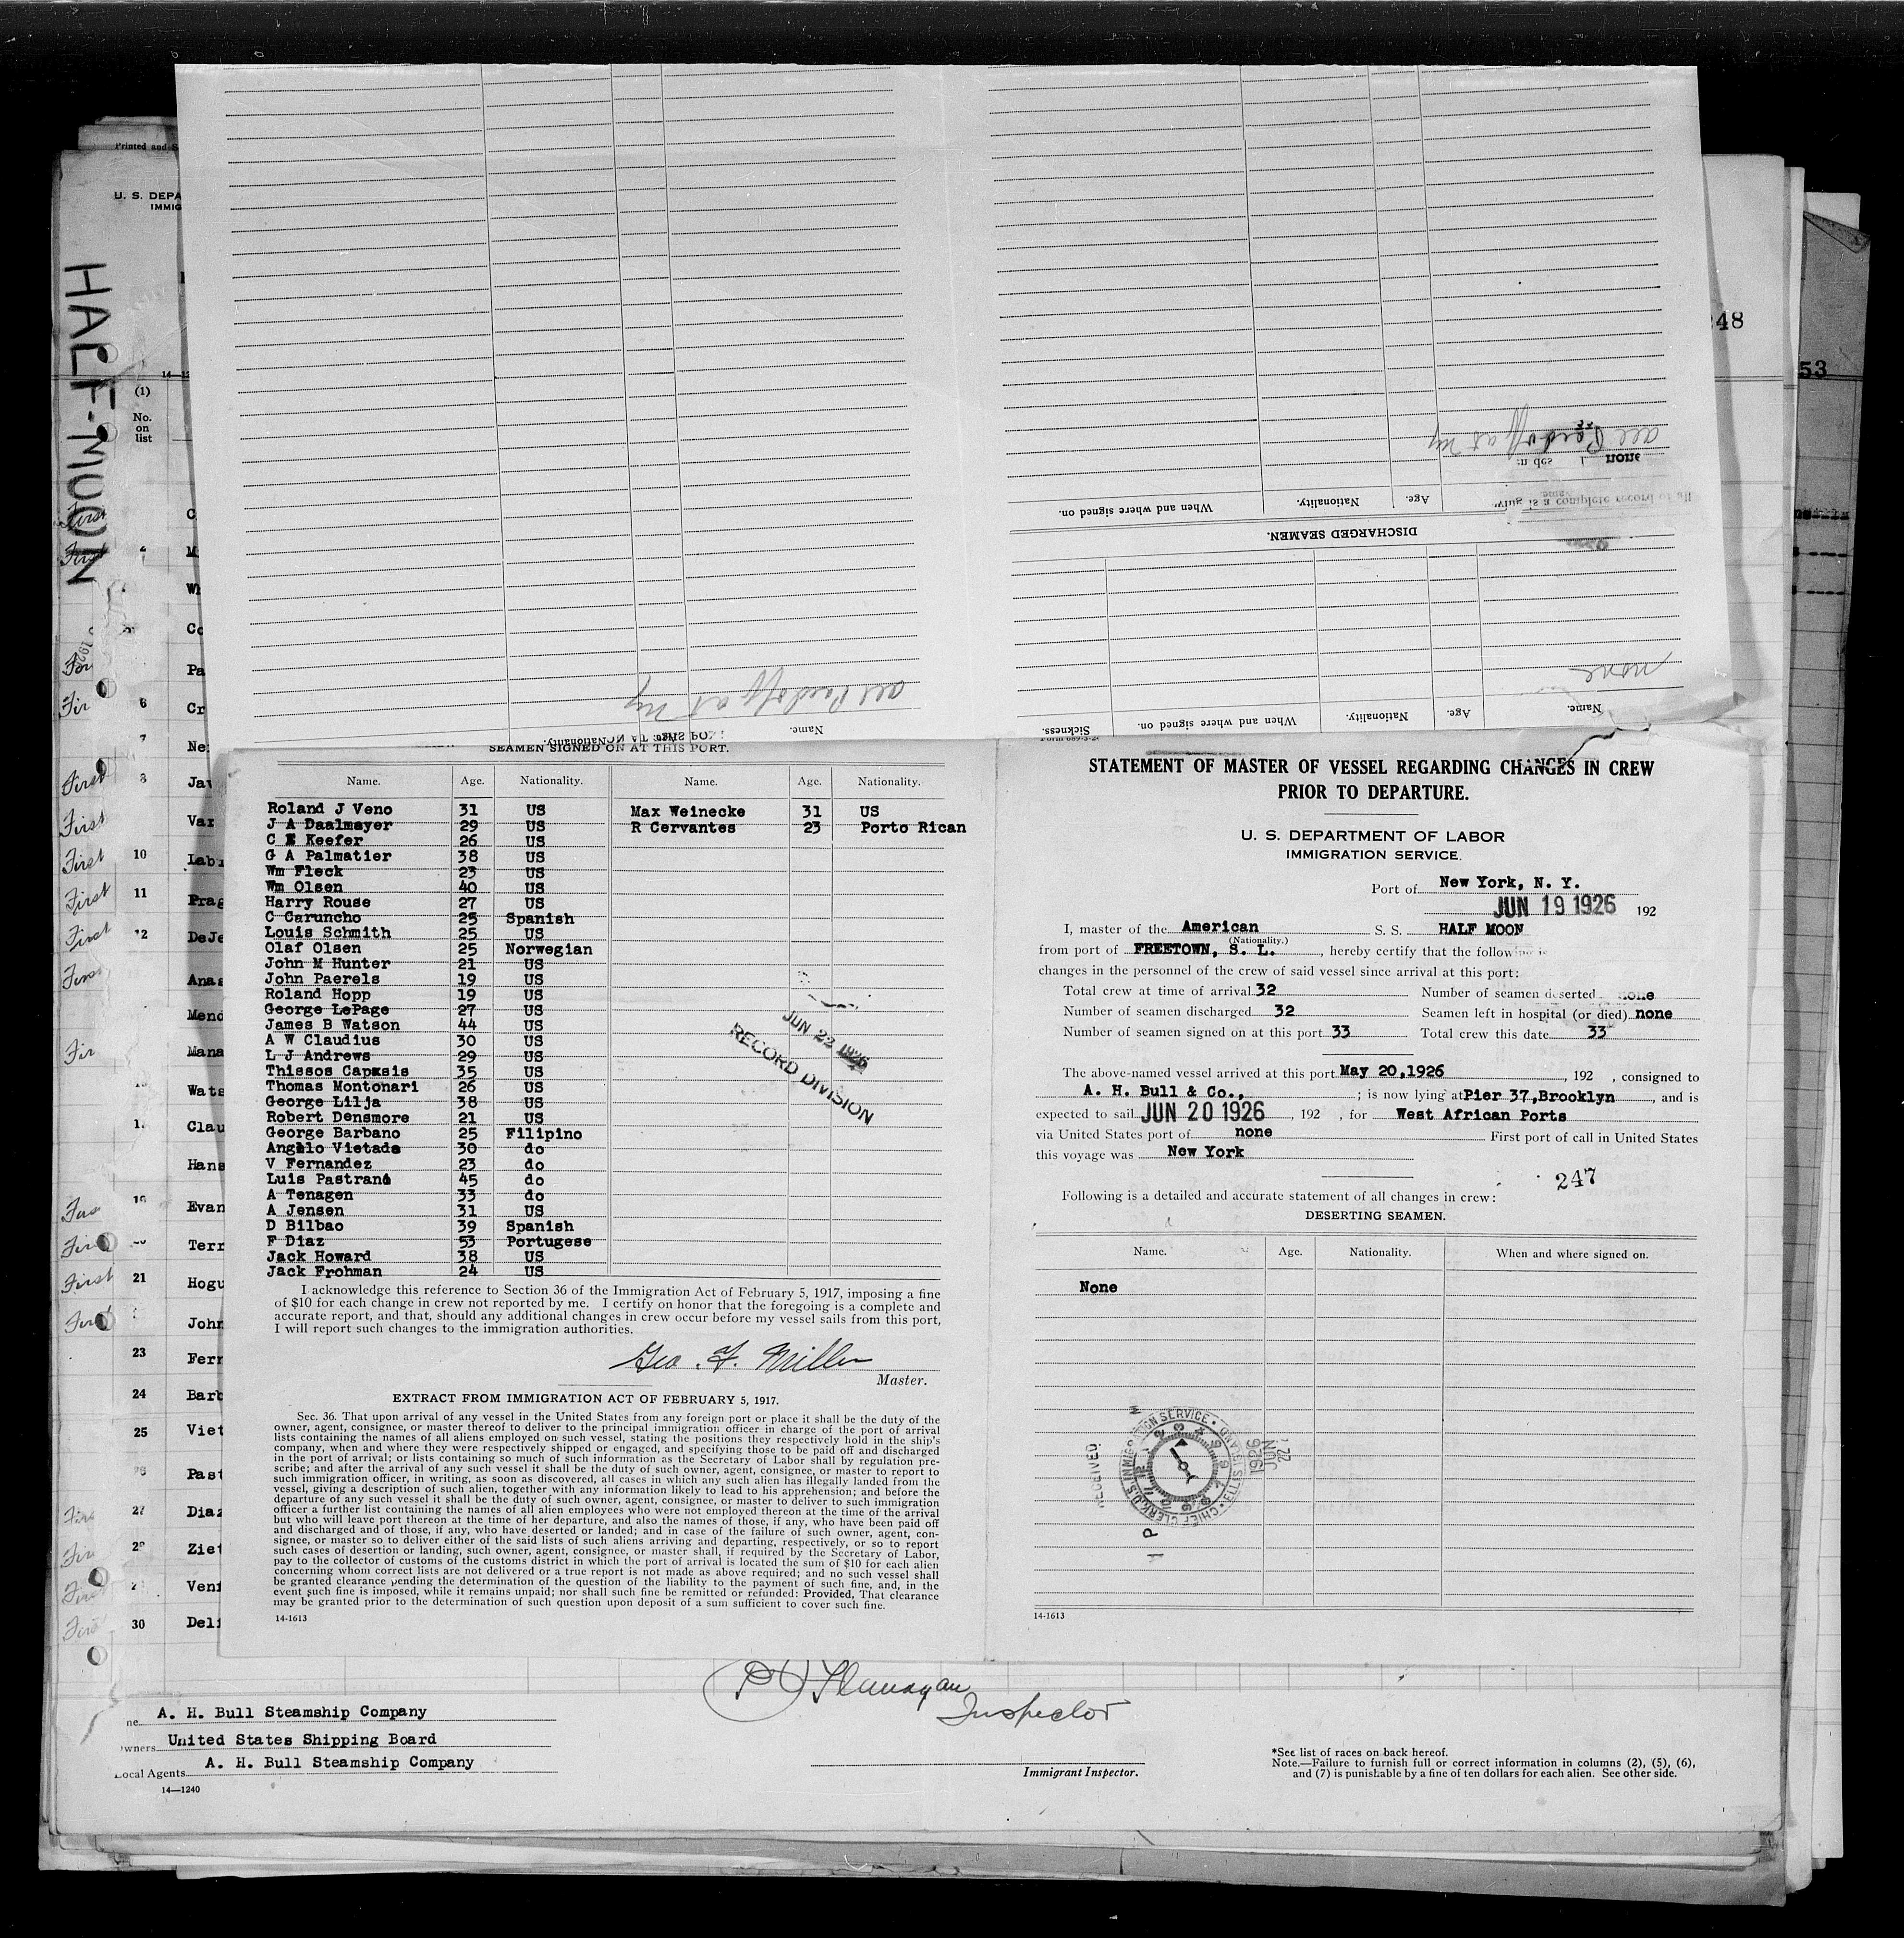 Printed and
U. S. DEPA
IMMIG
HALF-MOON
14—12
(1)
No.
on
list
248
53
all Paid off at NY
none
When and where signed on.
Nationality.
Age.
DISCHARGED SEAMEN.
none
Name.
Age.
Nationality.
When and where signed on.
Sickness.
all Paid off at NY
Name.
Nationality.
SEAMEN SIGNED ON AT THIS PORT.
Name. Age. Nationality. Name. Age. Nationality.
Roland J Veno 31 US Max Weinecke 31 US
J A Daalmeyer 29 US R Cervantes 23 Porto Rican
C E Keefer 26 US
G A Palmatier 38 US
Wm Fleck 23 US
Wm Olsen 40 US
Harry Rouse 27 US
C Caruncho 25 Spanish
Louis Schmith 25 US
Olaf Olsen 25 Norwegian
John M Hunter 21 US
John Paerels 19 US
Roland Hopp 19 US
George LePage 27 US
James B Watson 44 US
A W Claudius 30 US
L J Andrews 29 US
Thissos Capasis 35 US
Thomas Montonari 26 US
George Lilja 38 US
Robert Densmore 21 US
George Barbano 25 Filipino
Angelo Vietade 30 do
V Fernandez 23 do
Luis Pastrana 45 do
A Tenagen 33 do
A Jensen 31 US
D Bilbao 39 Spanish
F Diaz 53 Portugese
Jack Howard 38 US
Jack Frohman 24 US
JUN 22 1926
RECORD DIVISION
I acknowledge this reference to Section 36 of the Immigration Act of February 5, 1917, imposing a fine
of $10 for each change in crew not reported by me. I certify on honor that the foregoing is a complete and
accurate report, and that, should any additional changes in crew occur before my vessel sails from this port,
I will report such changes to the immigration authorities.
Geo. F. Miller
Master.
EXTRACT FROM IMMIGRATION ACT OF FEBRUARY 5, 1917.
Sec. 36. That upon arrival of any vessel in the United States from any foreign port or place it shall be the duty of the
owner, agent, consignee, or master thereof to deliver to the principal immigration officer in charge of the port of arrival
lists containing the names of all aliens employed on such vessel, stating the positions they respectively hold in the ship's
company, when and where they were respectively shipped or engaged, and specifying those to be paid off and discharged
in the port of arrival; or lists containing so much of such information as the Secretary of Labor shall by regulation pre-
scribe; and after the arrival of any such vessel it shall be the duty of such owner, agent, consignee, or master to report to
such immigration officer, in writing, as soon as discovered, all cases in which any such alien has illegally landed from the
vessel, giving a description of such alien, together with any information likely to lead to his apprehension; and before the
departure of any such vessel it shall be the duty of such owner, agent, consignee, or master to deliver to such immigration
officer a further list containing the names of all alien employees who were not employed thereon at the time of the arrival
but who will leave port thereon at the time of her departure, and also the names of those, if any, who have been paid off
and discharged and of those, if any, who have deserted or landed; and in case of the failure of such owner, agent, con-
signee, or master so to deliver either of the said lists of such aliens arriving and departing, respectively, or so to report
such cases of desertion or landing, such owner, agent, consignee, or master shall, if required by the Secretary of Labor,
pay to the collector of customs of the customs district in which the port of arrival is located the sum of $10 for each alien
concerning whom correct lists are not delivered or a true report is not made as above required; and no such vessel shall
be granted clearance pending the determination of the question of the liability to the payment of such fine, and, in the
event such fine is imposed, while it remains unpaid; nor shall such fine be remitted or refunded: Provided, That clearance
may be granted prior to the determination of such question upon deposit of a sum sufficient to cover such fine.
14-1613
STATEMENT OF MASTER OF VESSEL REGARDING CHANGES IN CREW
PRIOR TO DEPARTURE.
U. S. DEPARTMENT OF LABOR
IMMIGRATION SERVICE.
Port of New York, N. Y.
JUN 19 1926 192
I, master of the American S. S. HALF MOON
(Nationality.)
from port of FREETOWN, S. L. , hereby certify that the following is
changes in the personnel of the crew of said vessel since arrival at this port:
Total crew at time of arrival 32 Number of seamen deserted none
Number of seamen discharged 32 Seamen left in hospital (or died) none
Number of seamen signed on at this port 33 Total crew this date 33
The above-named vessel arrived at this port May 20,1926 , 192 , consigned to
A. H. Bull & Co., ; is now lying at Pier 37,Brooklyn , and is
expected to sail JUN 20 1926 , 192 , for West African Ports
via United States port of none First port of call in United States
this voyage was New York
247
Following is a detailed and accurate statement of all changes in crew:
DESERTING SEAMEN.
Name. Age. Nationality. When and where signed on.
None
RECEIVED
CHIEF CLERK, U.S. IMMIGRATION SERVICE • ELLIS ISLAND
JUN 22 1926
1 P M
14-1613
6 Cr
7
8
10
11
12 DeJe
Mend
Mana
Wats
Clau
Hans
Evan
Terr
21 Hogu
John
23 Ferr
24 Barb
25 Viet
Past
27 Diaz
Ziet
Veni
30 Deli
First
P Flanagan
Inspector
A. H. Bull Steamship Company
Owners United States Shipping Board
Local Agents A. H. Bull Steamship Company
14—1240
Immigrant Inspector.
*See list of races on back hereof.
Note.—Failure to furnish full or correct information in columns (2), (5), (6),
and (7) is punishable by a fine of ten dollars for each alien. See other side.